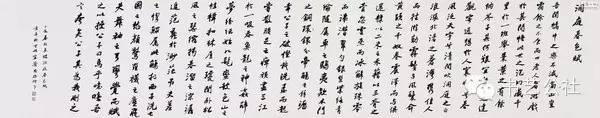 洞庭春色賦
吾聞橘中之樂不減商山豈
霜餘之不食而四老人者游戲
於其間悟此世之泡幻藏千
里於一班舉棗葉之有餘納
芥子其何艱宜賢王之達
觀寄逸想於人寰嫋嫋兮秋
風泛天宇兮清閑吹洞庭之白
浪漲北渚之蒼灣攜佳人
而往游勒霧鬢與風鬟命
黃頭之千奴卷震澤而與俱
還糅以二米之禾藉以三脊之
菅忽雲蒸而冰解旋珠零
而涕潸翠勺銀罌紫絡青
綸隨屬車之鴟夷款木門
之銅鐶分帝觴之餘瀝
幸公子之破慳我洗盞而起
嘗散腰足之痹頑盡三江
於一吸吞魚龍之神奸醉
夢紛紜始如髦蠻鼓包山之
桂楫扣林屋之瓊關臥松
風之瑟縮揭春溜之淙潺
追范蠡於渺茫吊夫差
之惸鰥屬此觴於西子洗亡
國之愁顏驚羅襪之塵飛
失舞袖之弓彎覺而賦
之以授公子曰烏乎噫嘻吾
言夸矣公子其為我刪之
书艺公社